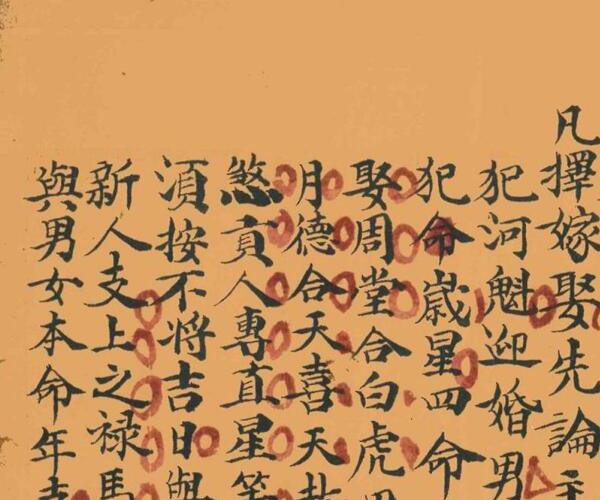 凡擇嫁娶先論
犯河魁迎婚男
犯命歲星四命
娶周堂合白虎
月德合天喜天
煞貢人專直星
須按不將吉日與
新人支上之禄馬
與男女本命年